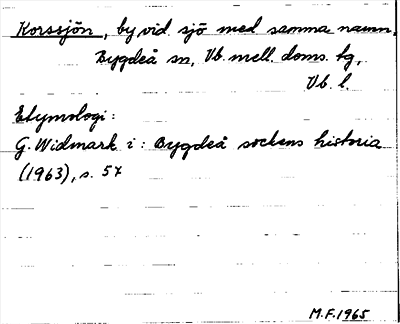 Korssjön, by vid sjö med samma namn,
Bygdeå sn, Vb. mell. doms. tg,
Vb. l.
Etymologi:
G. Widmark i: Bygdeå sockens historia
(1963), s. 57
M.F. 1965